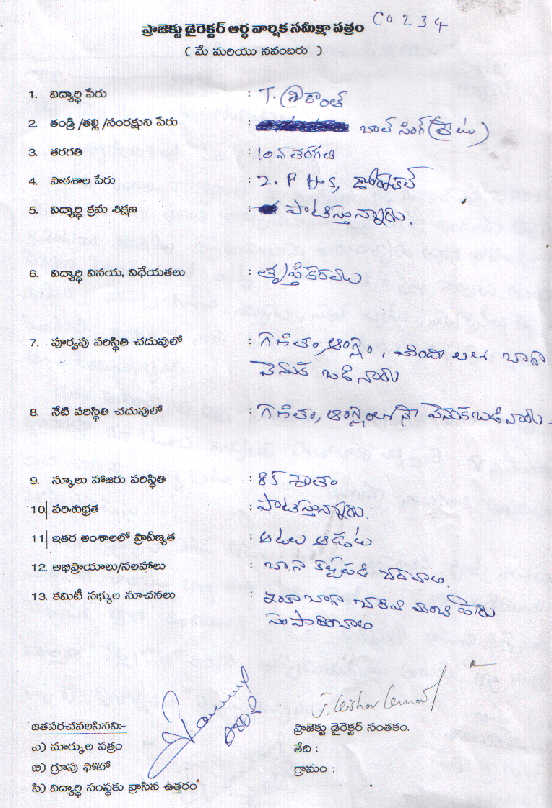 CO234
ప్రాజెక్టు డైరెక్టర్ అర్ధ వార్షిక సమీక్షా పత్రం
( మే మరియు నవంబరు )
1. విద్యార్థి పేరు : T. శ్రీకాంత్
2. తండ్రి/తల్లి/సంరక్షకుని పేరు : బాల్ సింగ్ (రైతు)
3. తరగతి : 10వ తరగతి
4. పాఠశాల పేరు : Z. P. H. S,
5. విద్యార్థి క్రమ శిక్షణ : పాటిస్తున్నాడు.
6. విద్యార్థి వినయ, విధేయతలు : తృప్తికరము
7. పూర్వపు పరిస్థితి చదువులో : గణితం, ఆంగ్లం, బాగా
వెనుక బడినాడు
8. నేటి పరిస్థితి చదువులో : గణితం, ఆంగ్లంలో వెనుకబడినాడు
9. స్కూలు హాజరు పరిస్థితి : 85 శాతం
10| పరిశుభ్రత : పాటిస్తున్నాడు.
11| ఇతర అంశాలలో ప్రావీణ్యత : ఆటలు ఆడుట
12. అభిప్రాయాలు/సలహాలు : బాగా కష్టపడి చదవాలి.
13. కమిటీ సభ్యుల సూచనలు : ఇంకా బాగా చదివి మంచి పేరు
సంపాదించాలి
జతపరచవలసినవి:-
ఎ) మార్కుల పత్రం
బి) గ్రూపు ఫోటో
సి) విద్యార్థి సంస్థకు వ్రాసిన ఉత్తరం
ప్రాజెక్టు డైరెక్టర్ సంతకం.
తేది :
గ్రామం :